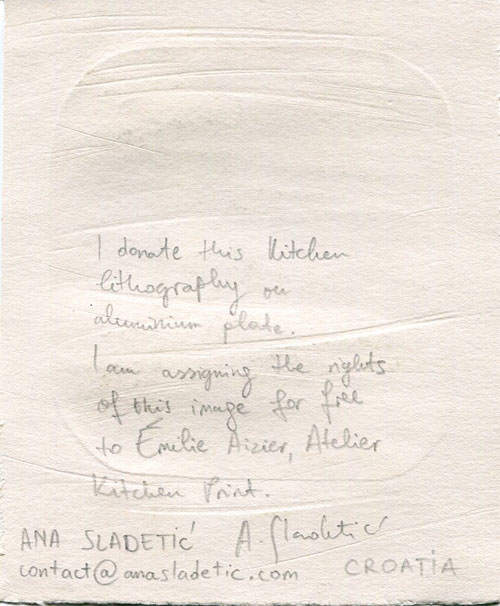 I donate this Kitchen
lithography on
aluminium plate.
I am assigning the rights
of this image for free
to Émilie Aizier, Atelier
Kitchen Print.
ANA SLADETIĆ A. Sladetić
contact@anasladetic.com CROATIA